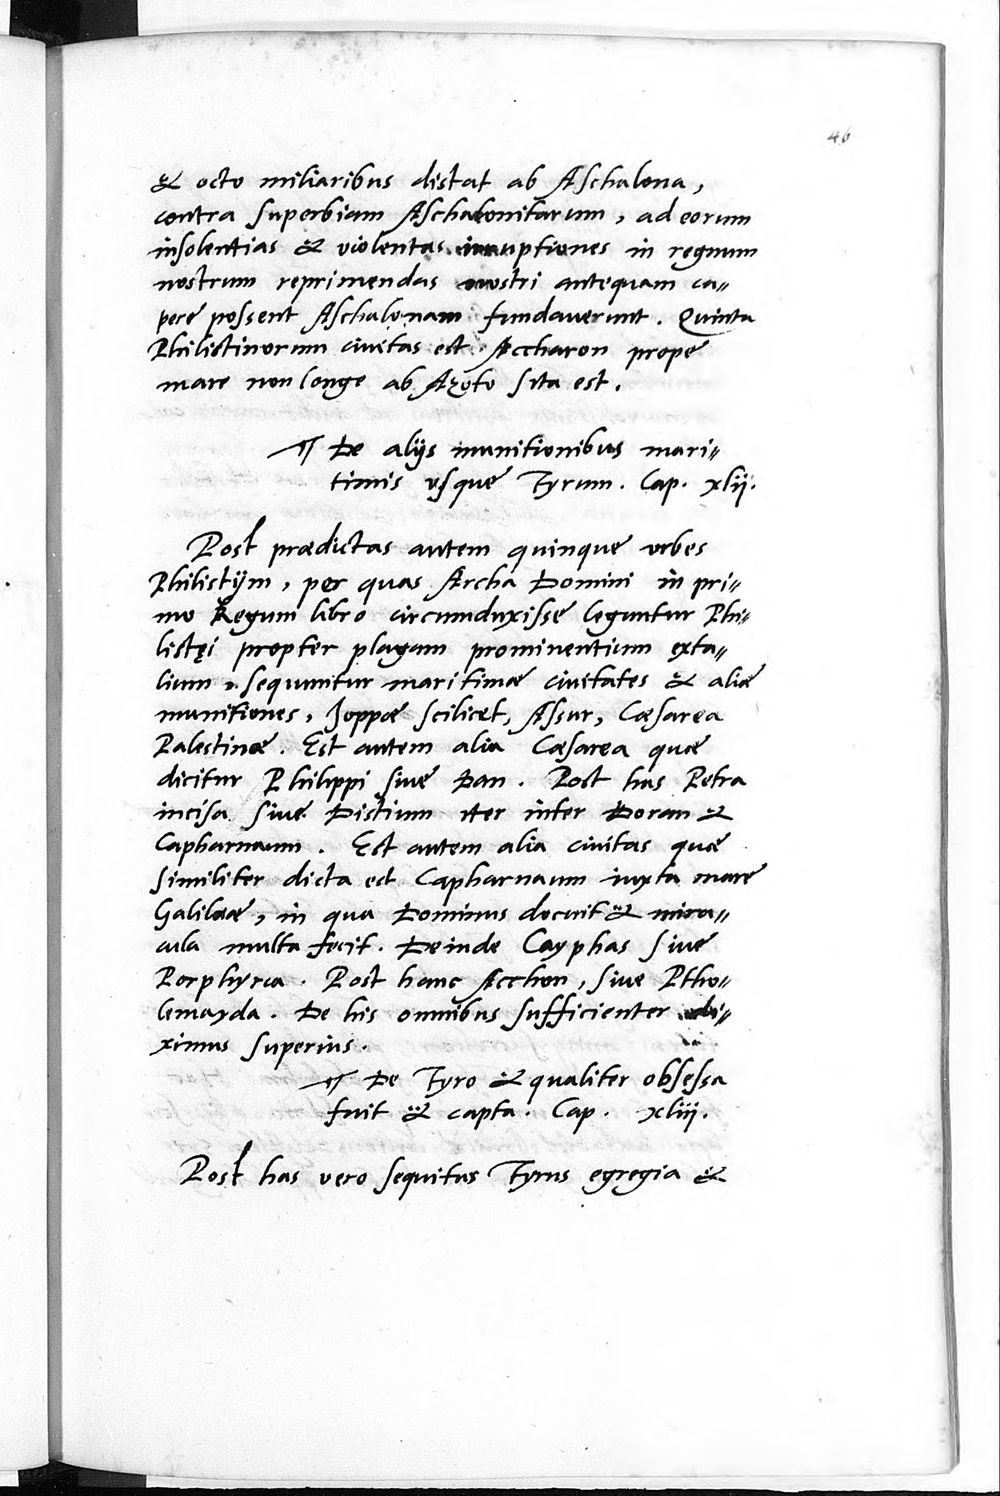 46
& octo miliaribus distat ab Aschalona,
contra superbiam Aschalonitarum, ad eorum
insolentias & violentas irruptiones in regnum
nostrum reprimendas nostri antequam ca〃
pere possent Aschalonam fundauerunt. Quinta
Philistinorum ciuitas est Accharon prope
mare non longe ab Azoto sita est.
¶ De alijs munitionibus mari〃
timis usque Tyrum. Cap. xlij.
Post prædictas autem quinque urbes
Philistijm, per quas Archa Domini in pri〃
mo Regum libro circumduxisse leguntur Phi〃
listęi propter plagam prominentium exta〃
lium, sequuntur maritimæ ciuitates & aliæ
munitiones, Joppæ scilicet, Assur, Cæsarea
Palestinæ. Est autem alia Cæsarea quæ
dicitur Philippi siue Dan. Post has Petra
incisa siue Distium iter inter Doram &
Capharnaum. Est autem alia ciuitas quæ
similiter dicta est Capharnaum iuxta mare
Galilææ, in qua Dominus docuit & mira〃
cula multa fecit. Deinde Cayphas siue
Porphyria. Post hanc Acchon, siue Ptho〃
lemayda. De his omnibus sufficienter di〃
ximus superius.
¶ De Tyro & qualiter obsessa
fuit & capta. Cap. xliij.
Post has vero sequitus Tyrus egregia &